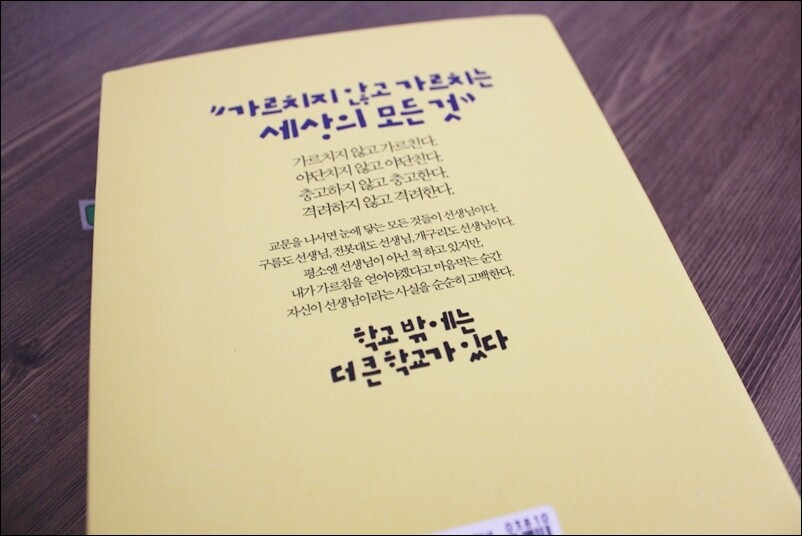 "가르치지 않고 가르치는
세상의 모든 것"
가르치지 않고 가르친다.
야단치지 않고 야단친다.
충고하지 않고 충고한다.
격려하지 않고 격려한다.
교문을 나서면 눈에 닿는 모든 것들이 선생님이다.
구름도 선생님, 전봇대도 선생님, 개구리도 선생님이다.
평소엔 선생님이 아닌 척 하고 있지만,
내가 가르침을 얻어야겠다고 마음먹는 순간
자신이 선생님이라는 사실을 순순히 고백한다.
학교 밖에는
더 큰 학교가 있다
03810